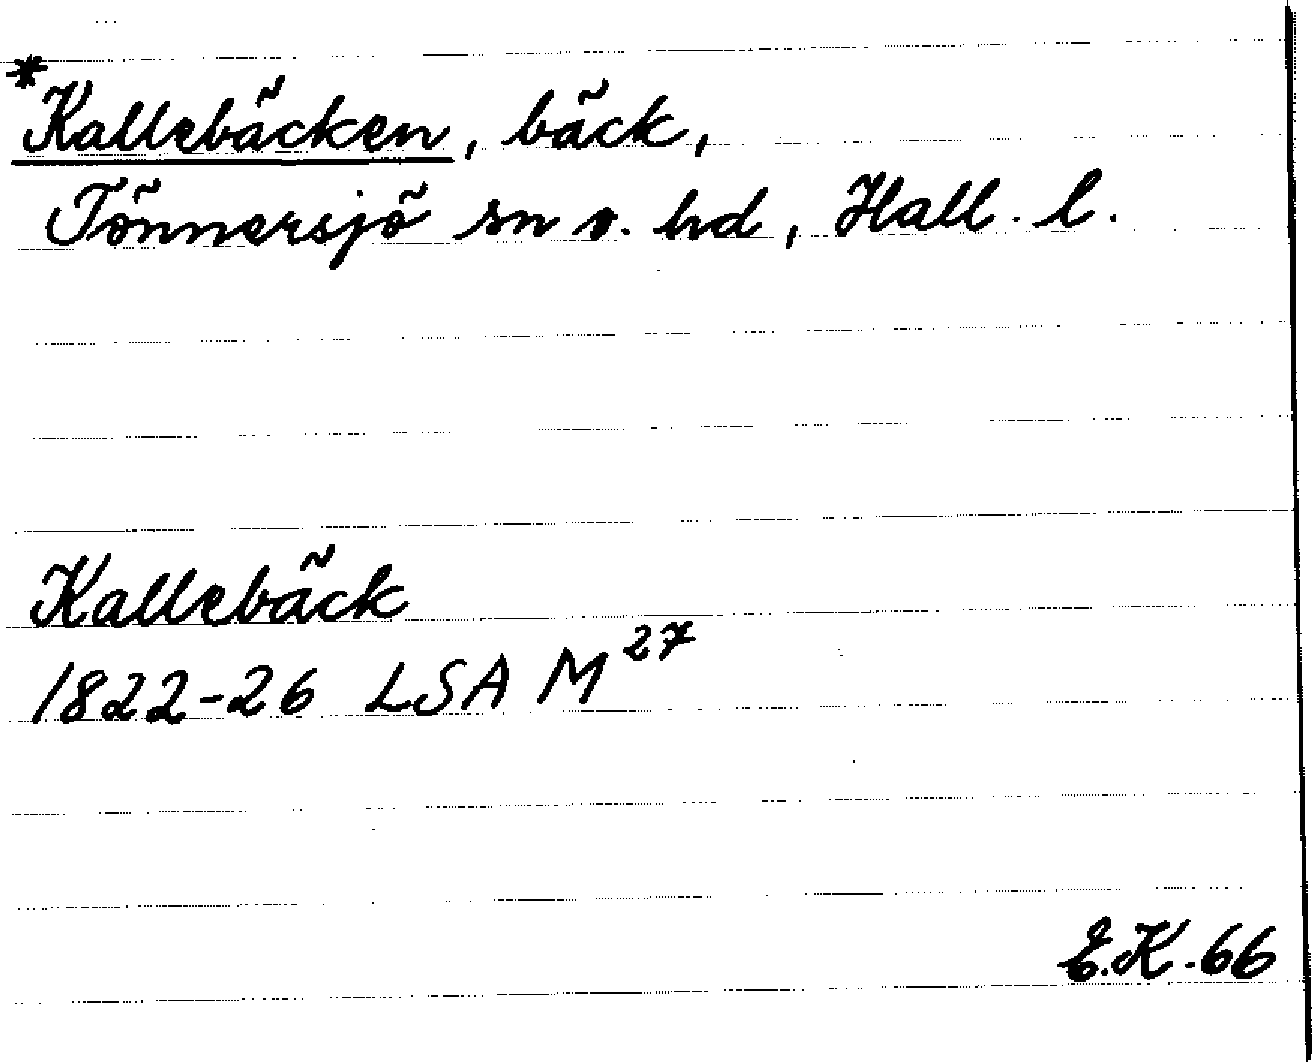 *Kallebäcken, bäck,
Tönnersjö sn o. hd, Hall. l.
Kallebäck
1822-26 LSA M²⁷
E.K. 66